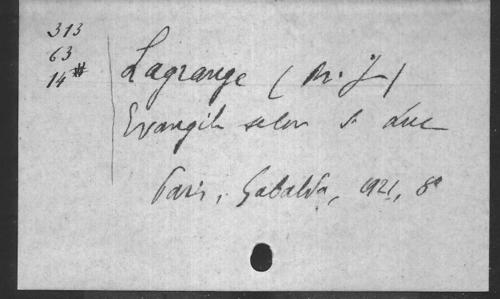 313
63
14#
Lagrange (M. J)
Evangile selon S. Luc
Paris, Gabalda, 1921, 8°